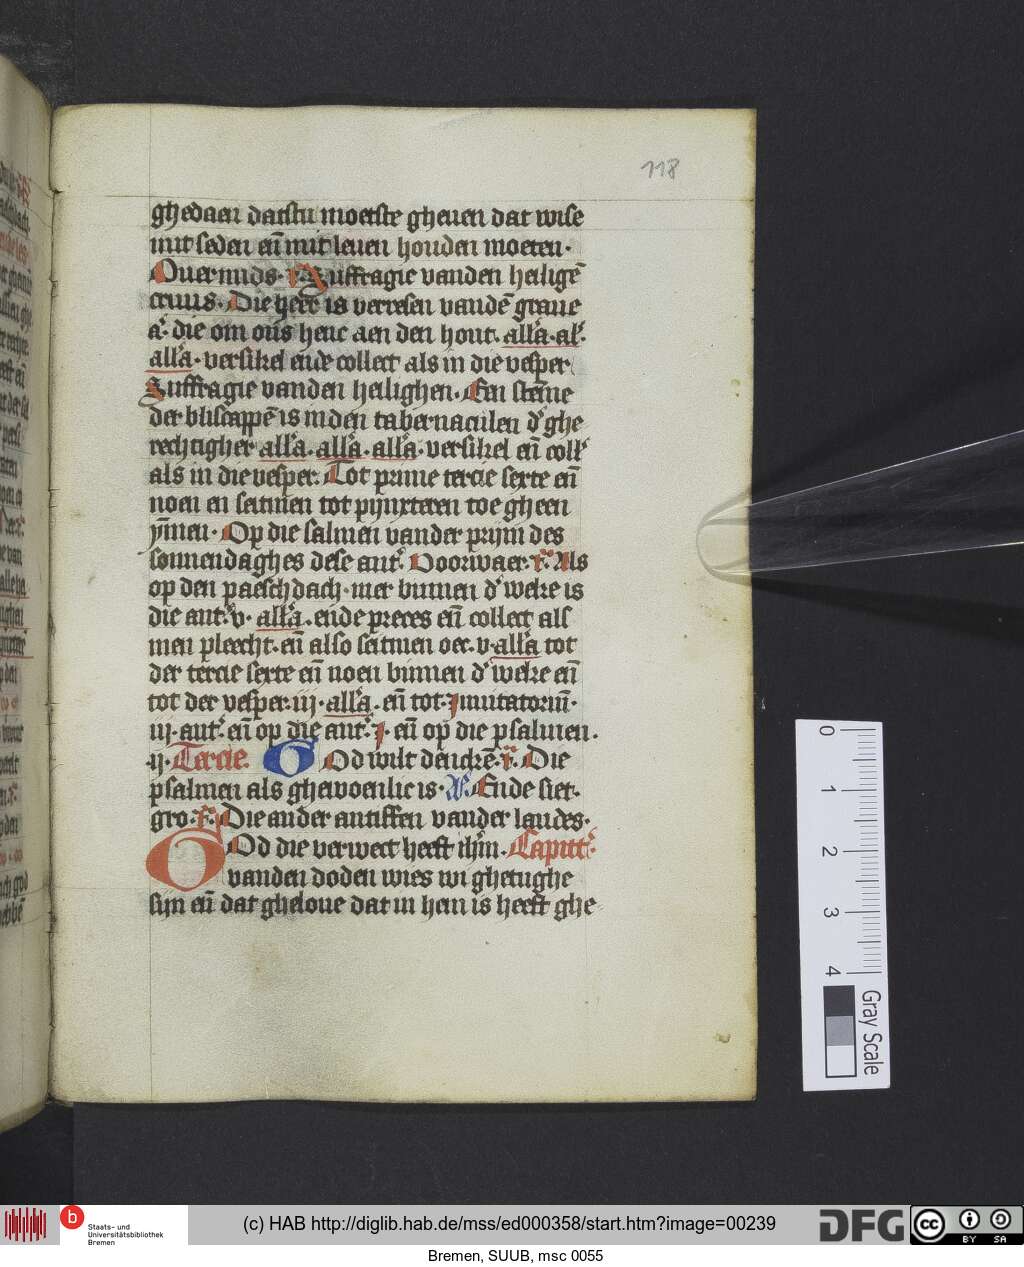 118
ghedaen datstu moetste gheuen dat wise
mit seden eñ mit leuen houden moeten·
Ouermids· Suffragie vanden heiligē
cruus· Die here is verresen vandē graue
a· die om ons henc aen den hout· all'a· al'·
all'a· versikel ende collect als in die vesper
Suffragie vanden heilighen· Een stēme
der bliscappē is inden tabernaculen d' ghe
rechtigher all'a· all'a· all'a· versikel eñ coll'
als in die vesper· Tot prime tercie sexte eñ
noen en seitmen tot pijnxteren toe gheen
ÿmen· Op die salmen vander prijm des
sonnendaghes dese ant'· Voorwaer· r· Als
op den paesch dach· mer binnen d' weke is
die ant'· v· all'a· ende preces eñ collect als
men pleecht· eñ also seitmen oec· v· all'a tot
der tercie sexte eñ noen binnen d' weke eñ
tot der vesper· iij· all'a· eñ tot· Inuitatoriū·
iij· ant'· eñ op die ant'· j· eñ op die psalmen·
ij· Tercie· God wilt denckē· r· Die
psalmen als ghewoenlic is· Ende siet·
gro· r· Die ander antiffen vander laudes·
God die verwect heeft ihm̄· Capitt'·
vanden doden wies wi ghetughe
sijn eñ dat gheloue dat in hem is heeft ghe
0 1 2 3 4
Gray Scale
Staats- und
Universitätsbibliothek
Bremen
(c) HAB http://diglib.hab.de/mss/ed000358/start.htm?image=00239
DFG
cc BY SA
Bremen, SUUB, msc 0055